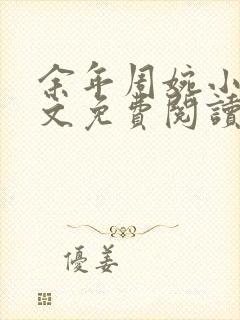 余年周婉小
文免費閱讀
優姜